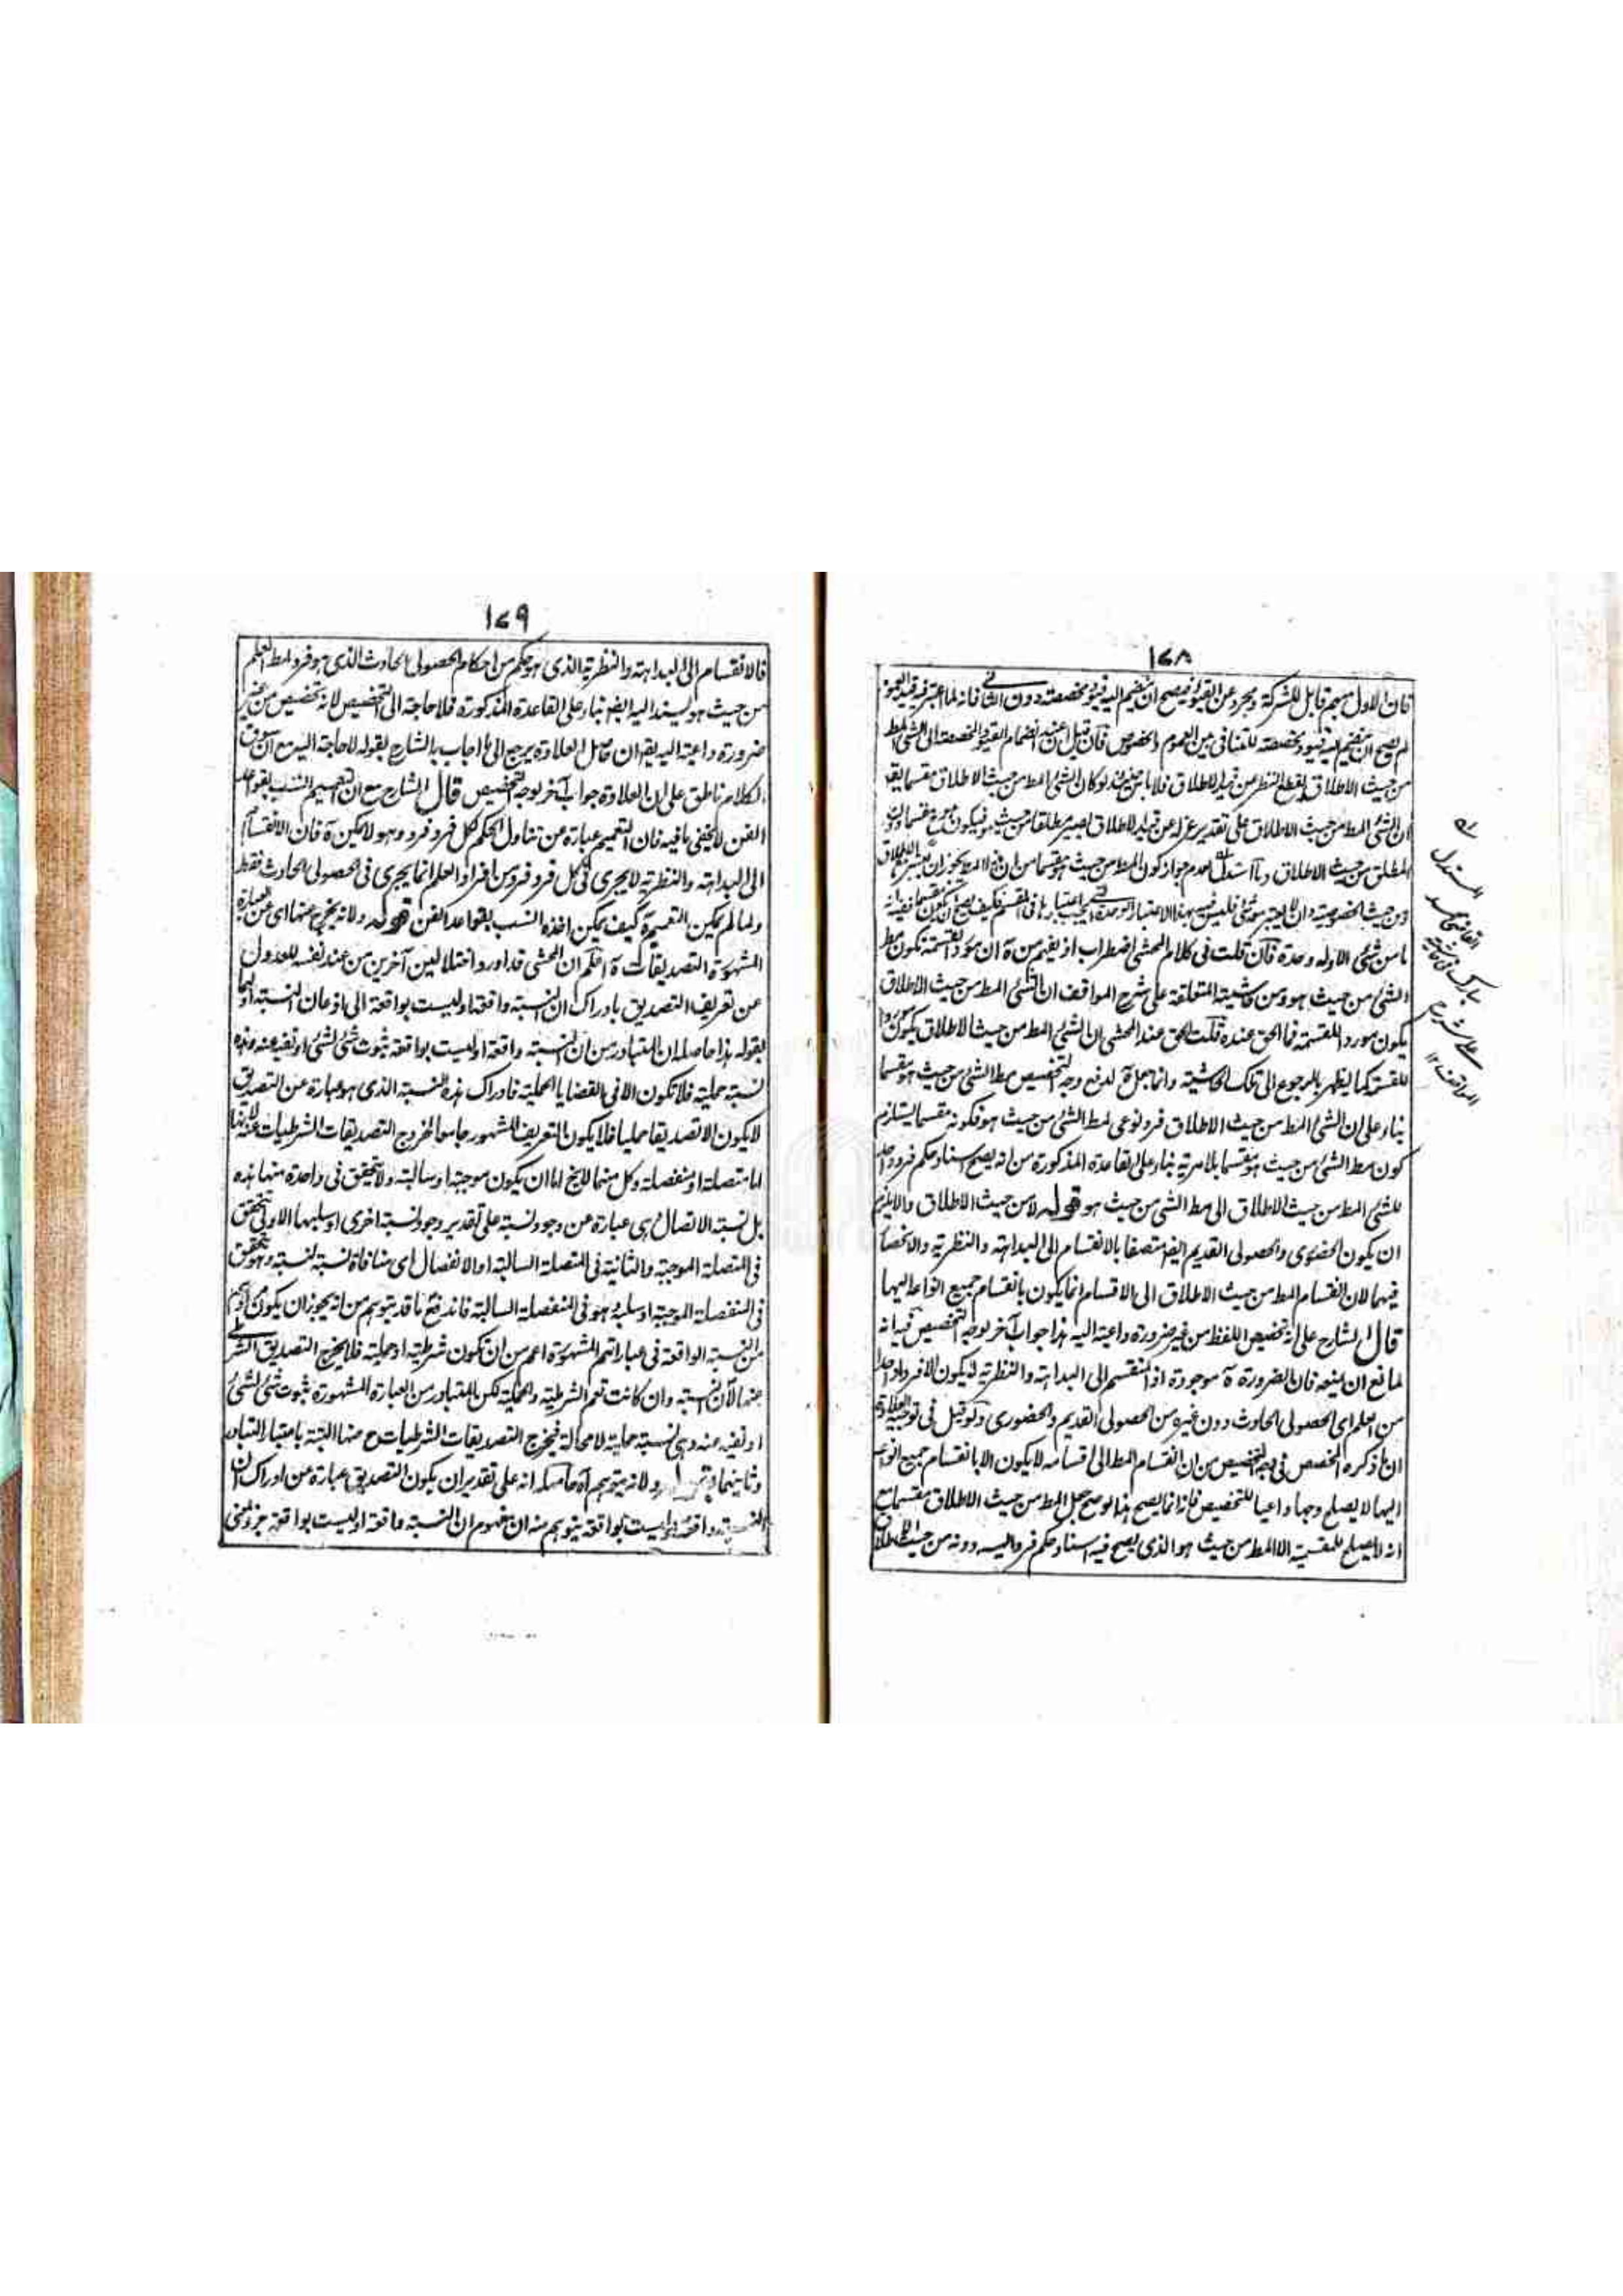 ١٧٨
فان الاول مبهم قابل للشركة ومجرد عن القيود فيصح ان ينضم اليه قيود مخصصة دون الثاني فانه لما اعتبر فيه قيد العموم
لم يصح ان ينضم اليه قيود مخصصة للتنافي بين العموم والخصوص فان قيل ان عند انضمام القيود المخصصة الى الشئ المط
من حيث الاطلاق يقطع النظر عن قيد الاطلاق فلا باس حينئذ لو كان الشئ المط من حيث الاطلاق مقسما يقا
ان الشئ المط من حيث الاطلاق على تقدير عزله عن قيد الاطلاق يصير مطلقا من حيث هو فيكون هو مقسما دون
المطلق من حيث الاطلاق وما استدل بعدم جواز كون المط من حيث هو مقسما من ان المط يجوز ان
ومن حيث الخصوصية وان لا يعتبر معه شئ فليس فيه بهذا الاعتبار الوحدة التي يجب اعتبارها في المقسم فكيف يصح ان يكون مقسما ففيه انه
ما من شئ الا وله وحدة فان قلت في كلام المحشي اضطراب اذ يفهم من ة ان مورد القسمة يكون مط
الشئ من حيث هو ومن حاشيته المتعلقة على شرح المواقف ان الشئ المط من حيث الاطلاق
يكون مورد القسمة فما الحق عنده قلت الحق عند المحشي ان الشئ المط من حيث الاطلاق يكون موردا
للقسمة كما يظهر بالرجوع الى تلك الحاشية وانما جعل ة لدفع وجه التخصيص مط الشئ من حيث هو مقسما
بناء على ان الشئ المط من حيث الاطلاق فرد نوعي لمط الشئ من حيث هو فكونه مقسما يستلزم
كون مط الشئ من حيث هو مقسما بلا مرية بناء على القاعدة المذكورة من انه يصح اسناد حكم فرد واحد
للشئ المط من حيث الاطلاق الى مط الشئ من حيث هو قوله لا من حيث الاطلاق والا يلزم
ان يكون الحضوري والحصولي القديم ايضا متصفا بالانقسام الى البداهة والنظرية والانحصار
فيهما لان انقسام المط من حيث الاطلاق الى الاقسام انما يكون بانقسام جميع انواعه اليها
قال الشارح على انه تخصيص اللفظ من غير ضرورة داعية اليه هذا جواب آخر لوجه التخصيص فيه انه
لمانع ان يمنعه فان الضرورة ة موجودة اذ المنقسم الى البداهة والنظرية لا يكون الا فردا واحدا
من العلم اي الحصولي الحادث دون غيره من الحصولي القديم والحضوري ولو قيل في توجيه العلاوة
ان ما ذكره المخصص في وجه التخصيص من ان انقسام المط الى اقسامه لا يكون الا بانقسام جميع انواعه
اليها لا يصلح وجها داعيا للتخصيص فانه انما يصح هذا لو صح جعل المط من حيث الاطلاق مقسما مع
انه لا يصلح للمقسمية الا المط من حيث هو الذي يصح فيه اسناد حكم فرد اليه دونه من حيث الاطلاق
المستدل
القاضي محمد
مبارك في حاشيته
على شرح
المواقف ١٢
١٧٩
فالانقسام الى البداهة والنظرية الذي هو حكم من احكام الحصولي الحادث الذي هو فرد لمط العلم
من حيث هو يسند اليه ايضا بناء على القاعدة المذكورة فلا حاجة الى التخصيص لانه تخصيص من غير
ضرورة داعية اليه يقا ان حاصل العلاوة يرجع الى ما اجاب به الشارح بقوله لا حاجة اليه مع ان سوق
الكلام ناطق على ان العلاوة جواب آخر لوجه التخصيص قال الشارح مع ان تعميم انسب بقواعد
الفن لا يخفى ما فيه فان التعميم عبارة من تناول الحكم كل فرد فرد وهو لا يمكن ة فان الانقسام
الى البداهة والنظرية لا يجري في كل فرد فرد من افراد العلم انما يجري في الحصولي الحادث فقط
ولما لم يمكن التعميم ة كيف يمكن اخذه انسب بقواعد الفن قوله ولانه يخرج عنها اي عن العبارة
المشهورة التصديقات ة اعلم ان المحشي قد اورد اختلالين آخرين من عند نفسه للعدول
عن تعريف التصديق بادراك ان النسبة واقعة او ليست بواقعة الى اذعان النسبة اولهما
بقوله هذا حاصله ان المتبادر من ان النسبة واقعة او ليست بواقعة ثبوت شئ لشئ او نفيه عنه وهذه
نسبة حملية فلا تكون الا في القضايا الحملية فادراك هذه النسبة الذي هو عبارة عن التصديق
لا يكون الا تصديقا حمليا فلا يكون التعريف المشهور جامعا لخروج التصديقات الشرطيات عنه لانها
اما متصلة او منفصلة وكل منهما لا يخ اما ان يكون موجبة او سالبة ولا يتحقق في واحدة منها هذه
بل نسبة الاتصال هي عبارة عن وجود نسبة على تقدير وجود نسبة اخرى او سلبها الاولى تتحقق
في المتصلة الموجبة والثانية في المتصلة السالبة او الانفصال اي منافاة نسبة لنسبة وهو يتحقق
في المنفصلة الموجبة او سلبه وهو في المنفصلة السالبة فاندفع ما قد يتوهم من انه يجوز ان يكون مرادهم
من النسبة الواقعة في عباراتهم المشهورة اعم من ان تكون شرطية او حملية فلا يخرج التصديق الشرطي
عنها لان النسبة وان كانت تعم الشرطية والحملية لكن المتبادر من العبارة المشهورة ثبوت شئ لشئ
او نفيه عنه وهي نسبة حملية لا محالة فيخرج التصديقات الشرطيات ح منها البتة باعتبار التبادر
وثانيهما ولانه يتوهم آه حاصله انه على تقدير ان يكون التصديق عبارة عن ادراك ان
النسبة واقعة او ليست بواقعة يتوهم منه ان مفهوم ان النسبة واقعة او ليست بواقعة جزء لمعنى